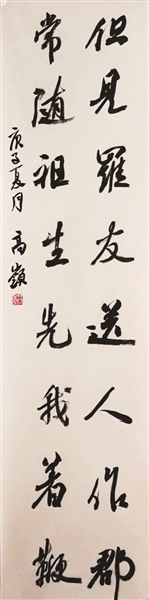 但見羅友送人作郡
常隨祖生先我着鞭
庚子夏月 高嶺